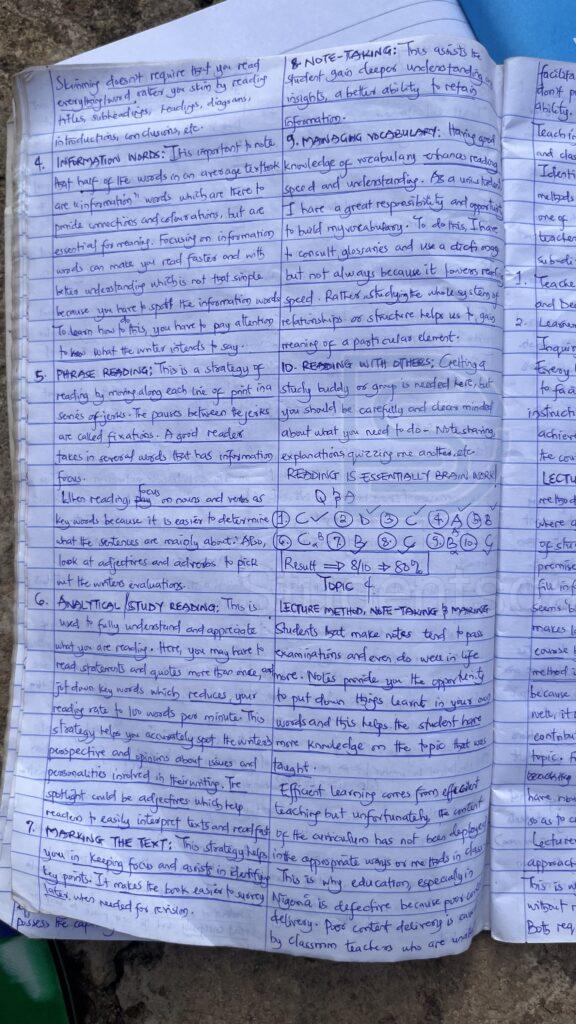 Skimming doesn't require that you read
everything/word rather you skim by reading
titles, subheadings, headings, diagrams,
introductions, conclusions, etc.
4. INFORMATION WORDS: It is important to note
that half of the words in an average textbook
are "information" words which are there to
provide connections and colourations, but are
essential for meaning. Focusing on information
words can make you read faster and with
better understanding which is not that simple
because you have to spot the information words
To learn how to this, you have to pay attention
to how what the writer intends to say.
5. PHRASE READING: This is a strategy of
reading by moving along each line of print in a
series of jerks. The pauses between the jerks
are called fixations. A good reader
takes in several words that has information
focus.
When reading, focus on nouns and verbs as
key words because it is easier to determine
what the sentences are mainly about. Also,
look at adjectives and adverbs to pick
out the writers evaluations.
6. ANALYTICAL/STUDY READING: This is
used to fully understand and appreciate
what you are reading. Here, you may have to
read statements and quotes more than once, and
jot down key words which reduces your
reading rate to 100 words per minute. This
strategy helps you accurately spot the writer's
perspective and opinions about issues and
personalities involved in their writing. The
spotlight could be adjectives which help
readers to easily interpret texts and read fast
7. MARKING THE TEXT: This strategy helps
you in keeping focus and assists in identifying
key points. It makes the book easier to survey
later, when needed for revision.
possess the cap
8. NOTE-TAKING: This assists the
student gain deeper understanding,
insights, a better ability to retain
information.
9. MANAGING VOCABULARY: Having good
knowledge of vocabulary enhances reading
speed and understanding. As a
I have a great responsibility and opportunity
to build my vocabulary. To do this, I have
to consult glossaries and use a dictionary
but not always because it lowers reading
speed. Rather studying the whole system of
relationships or structure helps us to gain
meaning of a particular element.
10. READING WITH OTHERS: Getting a
study buddy or group is needed here, but
you should be carefully and clear minded
about what you need to do - Note sharing,
explanations quizzing one another, etc
READING IS ESSENTIALLY BRAIN WORK!
Q & A
1. C 2. D 3. C 4. A 5. B
6. C B 7. B 8. C 9. B A 10. C
Result ⇒ 8/10 ⇒ 80%
TOPIC 4
LECTURE METHOD, NOTE-TAKING & MARKING
Students that make notes tend to pass
examinations and even do well in life
more. Notes provide you the opportunity
to put down things learnt in your own
words and this helps the student have
more knowledge on the topic that was
taught.
Efficient learning comes from efficient
teaching but unfortunately, the content
of the curriculum has not been deployed
in the appropriate ways or methods in class
This is why education, especially in
Nigeria is defective because poor content
delivery. Poor content delivery is
by classroom teachers who are
facilita
don't p
ability.
Teachi
and cla
Identi
methods
one of
teacher
1. Teache
and be
2. Learne
Inquir
Every
to fa
instruct
achieve
the cou
LECTU
method
where a
of stu
promise
fill inf
seems b
makes l
course
method
because
well, it
contribu
topic.
teaching
have mo
so as to c
Lecturer
approach
This is w
without r
Both req